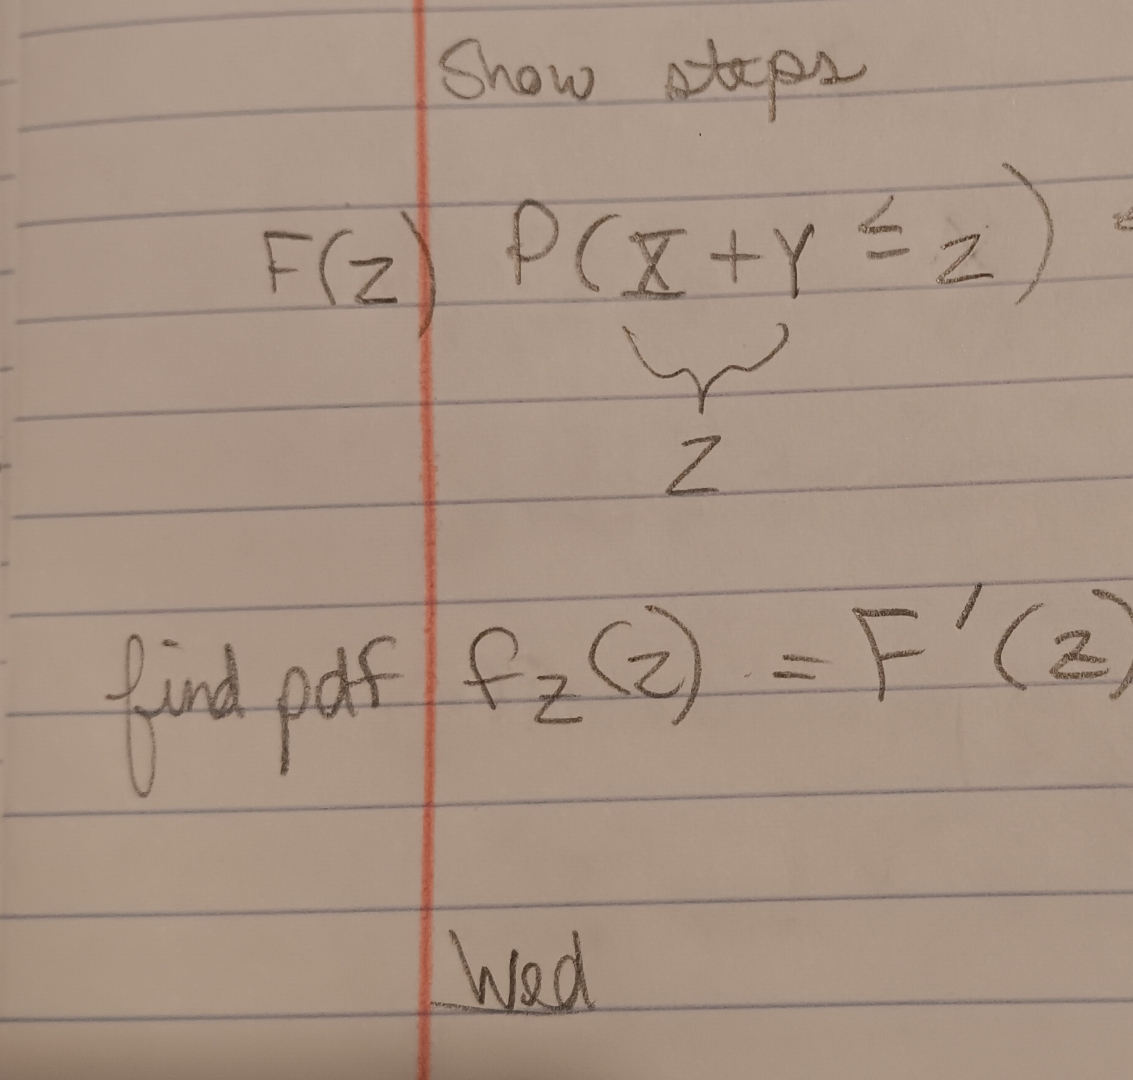 Show steps
F(z) P(X+Y ≤ z)
Z
find pdf f_Z(z) = F'(z)
Wed